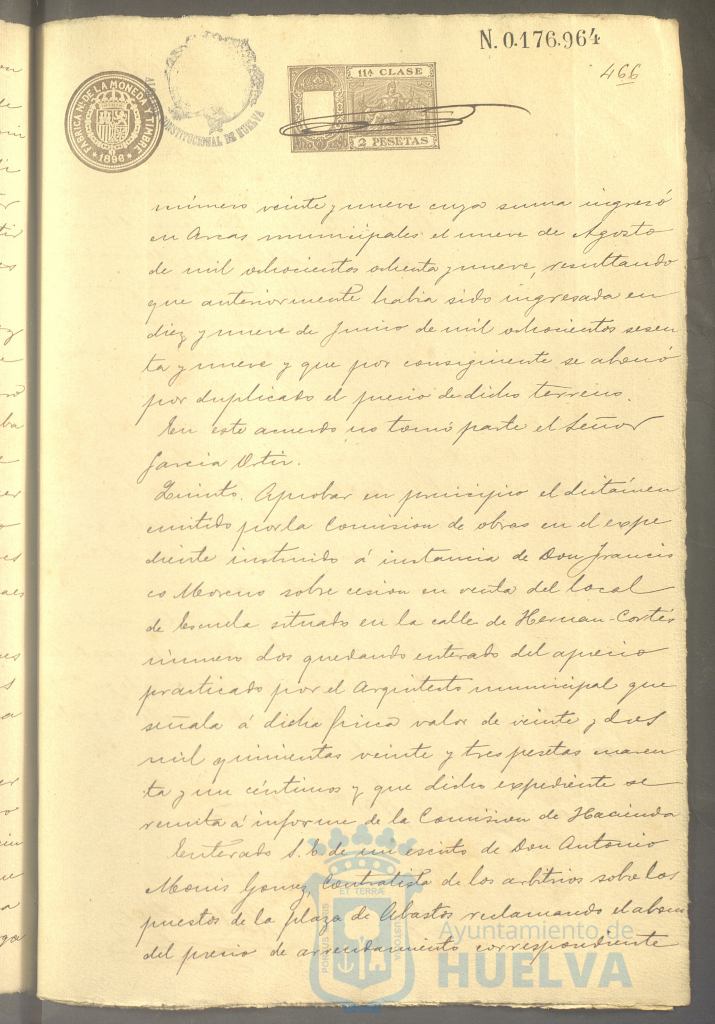 N. 0.176.964
466
FABRICA N. DE LA MONEDA Y TIMBRE
*1896*
CONSTITUCIONAL DE HUELVA
11ª CLASE
2 PESETAS
número veinte y nueve cuya suma ingresó
en Arcas municipales el nueve de Agosto
de mil ochocientos ochenta y nueve, resultando
que anteriormente habia sido ingresada en
diez y nueve de Junio de mil ochocientos sesen
ta y nueve y que por consiguiente se abonó
por duplicado el precio de dicho terreno.
En este acuerdo no tomó parte el Señor
Garcia Ortiz.
Quinto. Aprobar en principio el dictámen
emitido por la Comision de obras en el expe
diente instruido á instancia de Don Francis
co Moreno sobre cesion en venta del local
de Escuela situado en la calle de Hernan-Cortés
número dos quedando enterado del aprecio
practicado por el Arquitecto municipal que
señala á dicha finca valor de veinte y dos
mil quinientas veinte y tres pesetas cuaren
ta y un céntimos y que dicho expediente se
remita á informe de la Comision de Hacienda
Enterado S. E. de un escrito de Don Antonio
Monis Gomez, Contratista de los arbitrios sobre los
puestos de la plaza de Abastos reclamando el abono
del precio de arrendamiento correspondiente
PORTUS MARIS ET TERRAE CUSTODIA
Ayuntamiento de
HUELVA